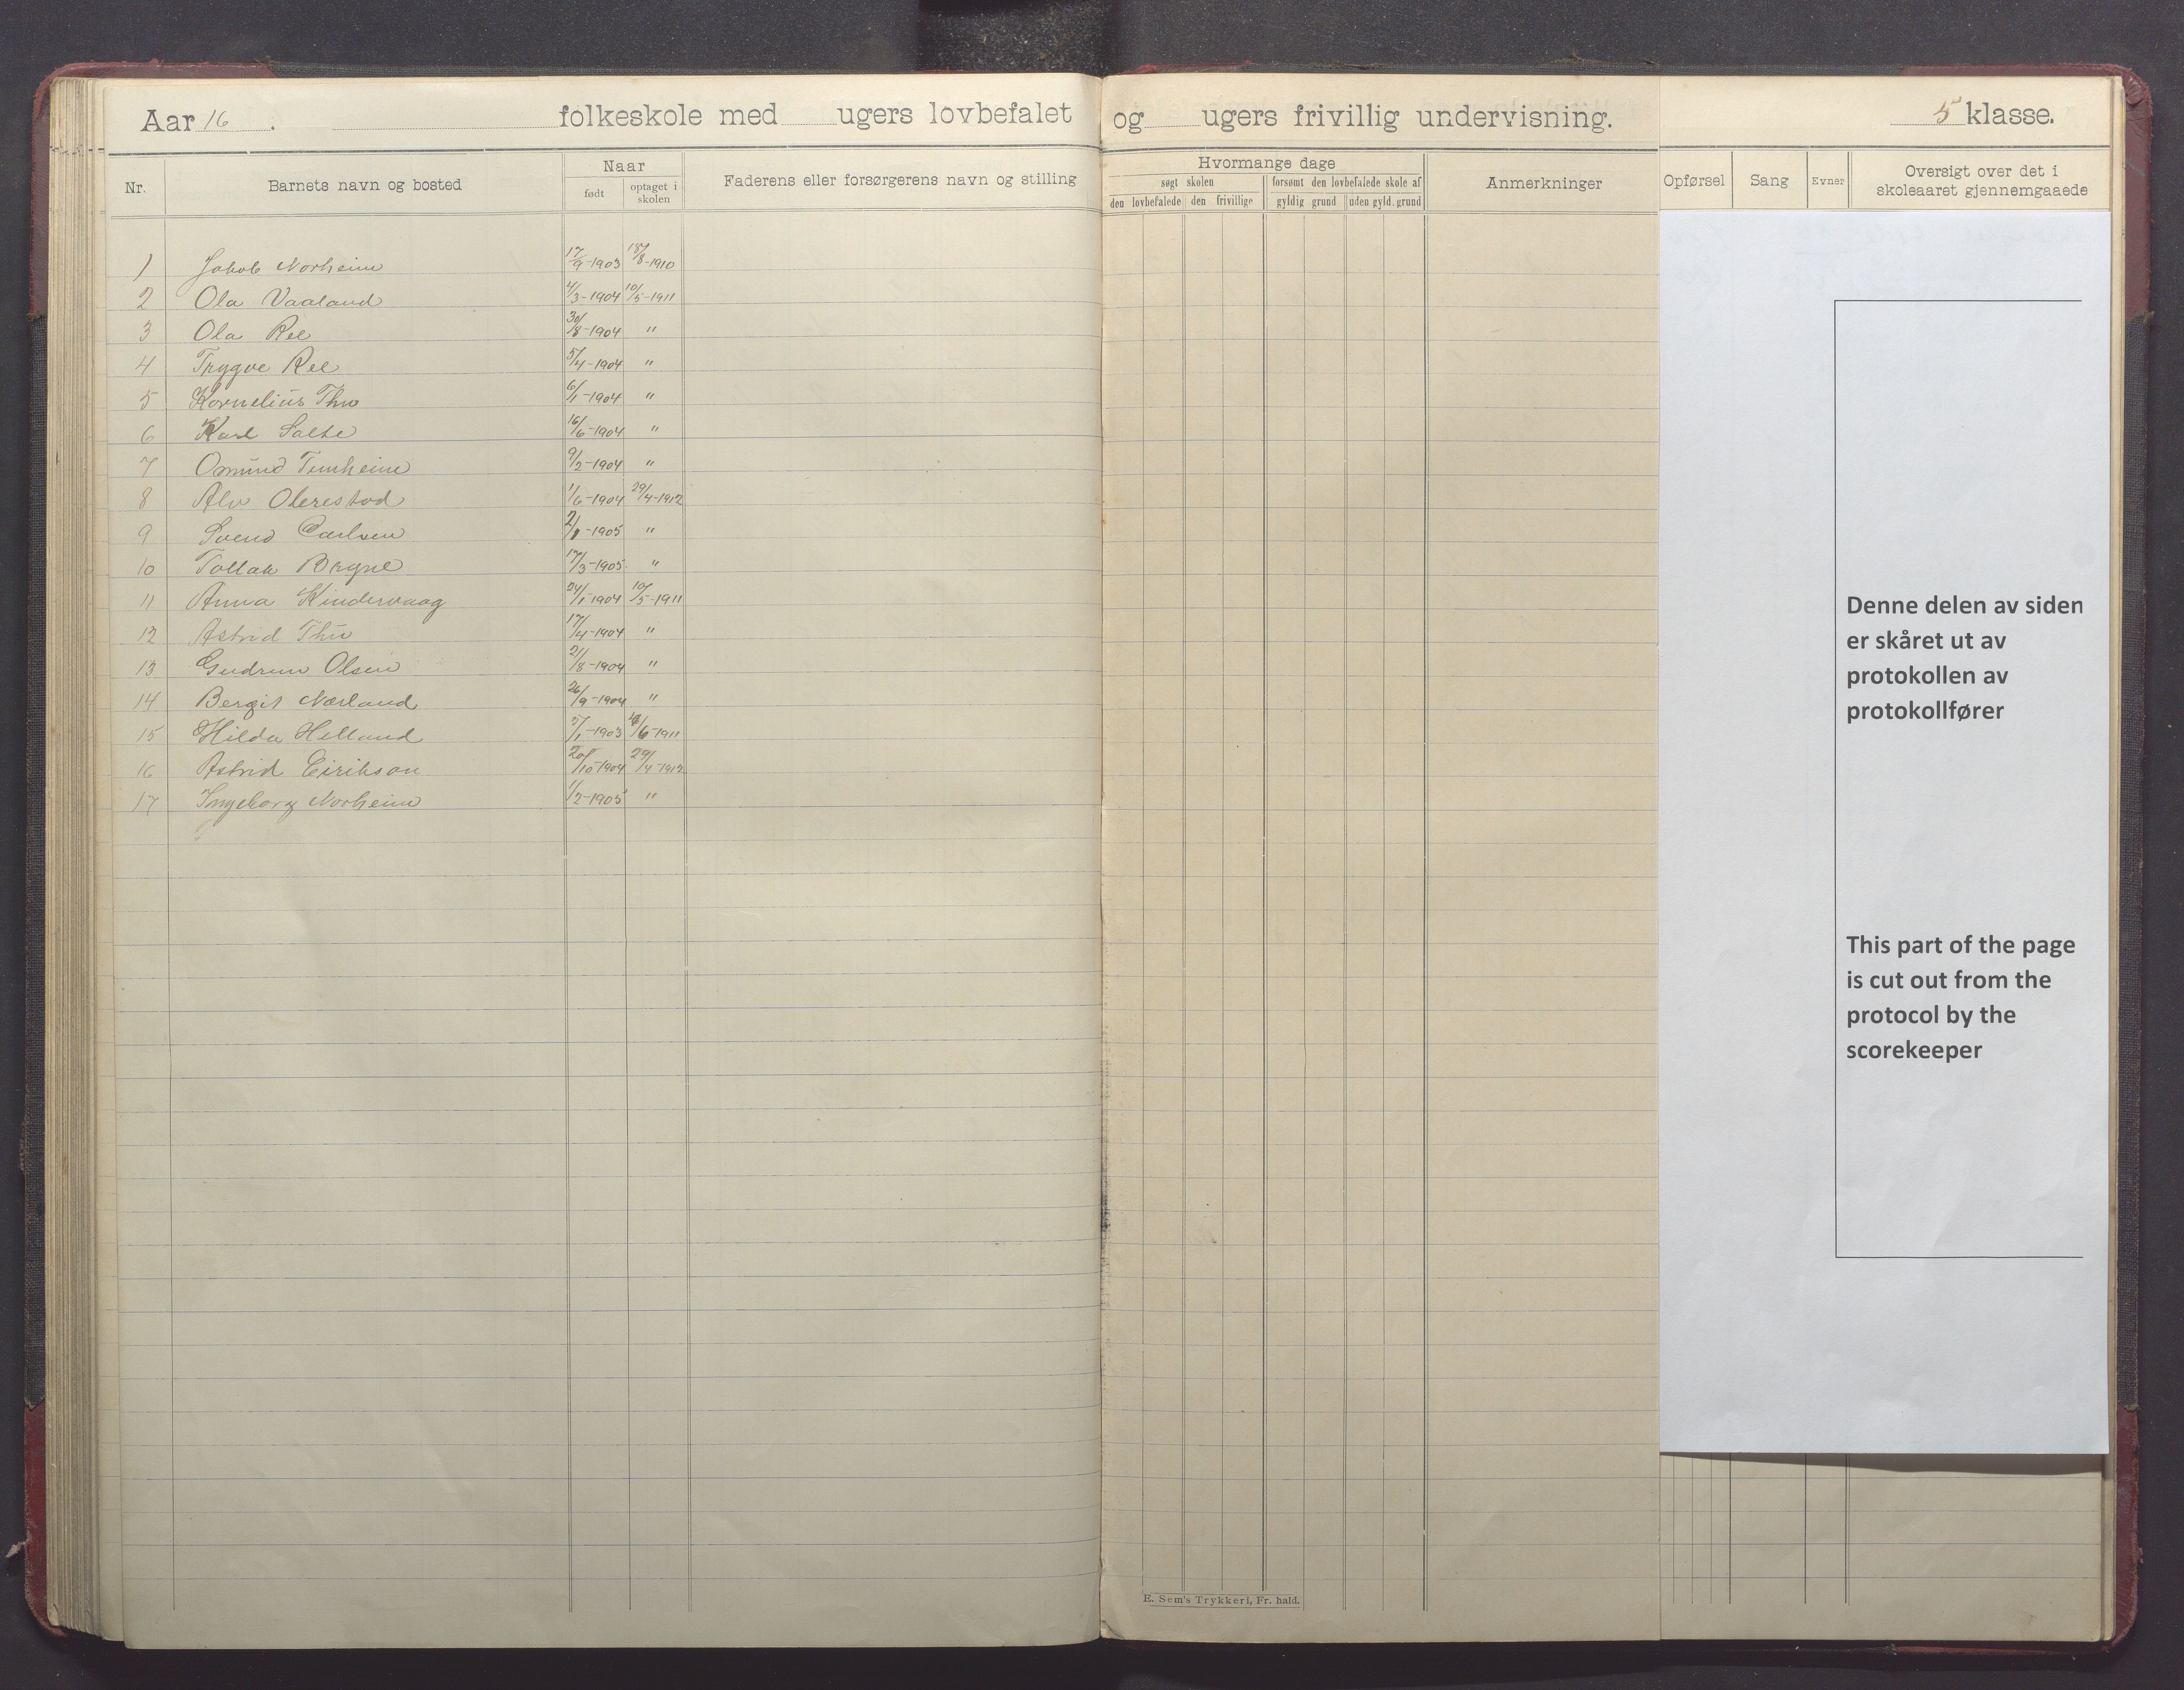 Aar 16. folkeskole med ugers lovbefalet og ugers frivillig undervisning. 5 klasse.
Nr. Barnets navn og bosted Naar født optaget i skolen Faderens eller forsørgerens navn og stilling
Hvormange dage søgt skolen den lovbefalede den frivillige forsømt den lovbefalede skole af gyldig grund uden gyld. grund Anmerkninger
Opførsel Sang Evner Oversigt over det i skoleaaret gjennemgaaede
1 Jakob Norheim 17/9-1903 18/8-1910
2 Ola Vaaland 4/3-1904 10/5-1911
3 Ola Ree 30/8-1904 "
4 Trygve Ree 5/4-1904 "
5 Kornelius Thu 6/1-1904 "
6 Karl Salte 16/6-1904 "
7 Omund Tunheim 9/2-1904 "
8 Alv Olerestad 1/6-1904 29/4-1912
9 Svend Carlsen -1905 "
10 Tollak Bryne 17/3-1905 "
11 Anna Kindervaag 24/1-1904 10/5-1911
12 Astrid Thu 17/4-1904 "
13 Gudrun Olsen 21/8-1904 "
14 Bergit Nærland 26/9-1904 "
15 Hilda Helland 5/1-1903 /6-1911
16 Astrid Eirikson 20/10-1904 29/4-1912
17 Ingeborg Norheim 1/2-1905 "
Denne delen av siden
er skåret ut av
protokollen av
protokollfører
This part of the page
is cut out from the
protocol by the
scorekeeper
E. Sem's Trykkeri, Fr. hald.